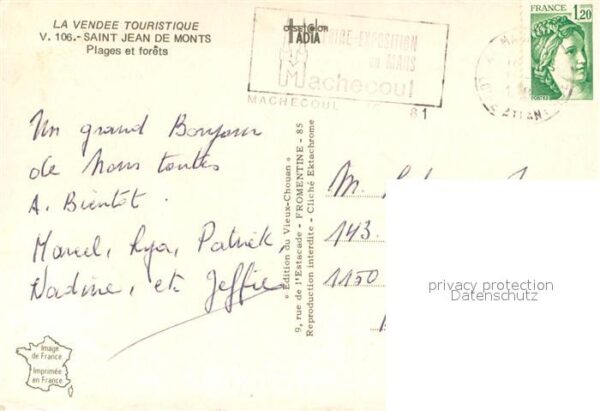 LA VENDEE TOURISTIQUE
V. 106.- SAINT JEAN DE MONTS
Plages et forêts
offset color
IADIA
FOIRE-EXPOSITION
en MARS
Machecoul
MACHECOUL
81
FRANCE
1,20
POSTES
Un grand Bonjour
de Nous toutes
A. Bientôt.
Marcel, Lya, Patrick,
Nadine, et Jeffie
« Edition du Vieux-Chouan »
9, rue de l'Estacade - FROMENTINE - 85
Reproduction interdite - Cliché Ektachrome
M.
143.
1150
privacy protection
Datenschutz
Image
de France
Imprimée
en France